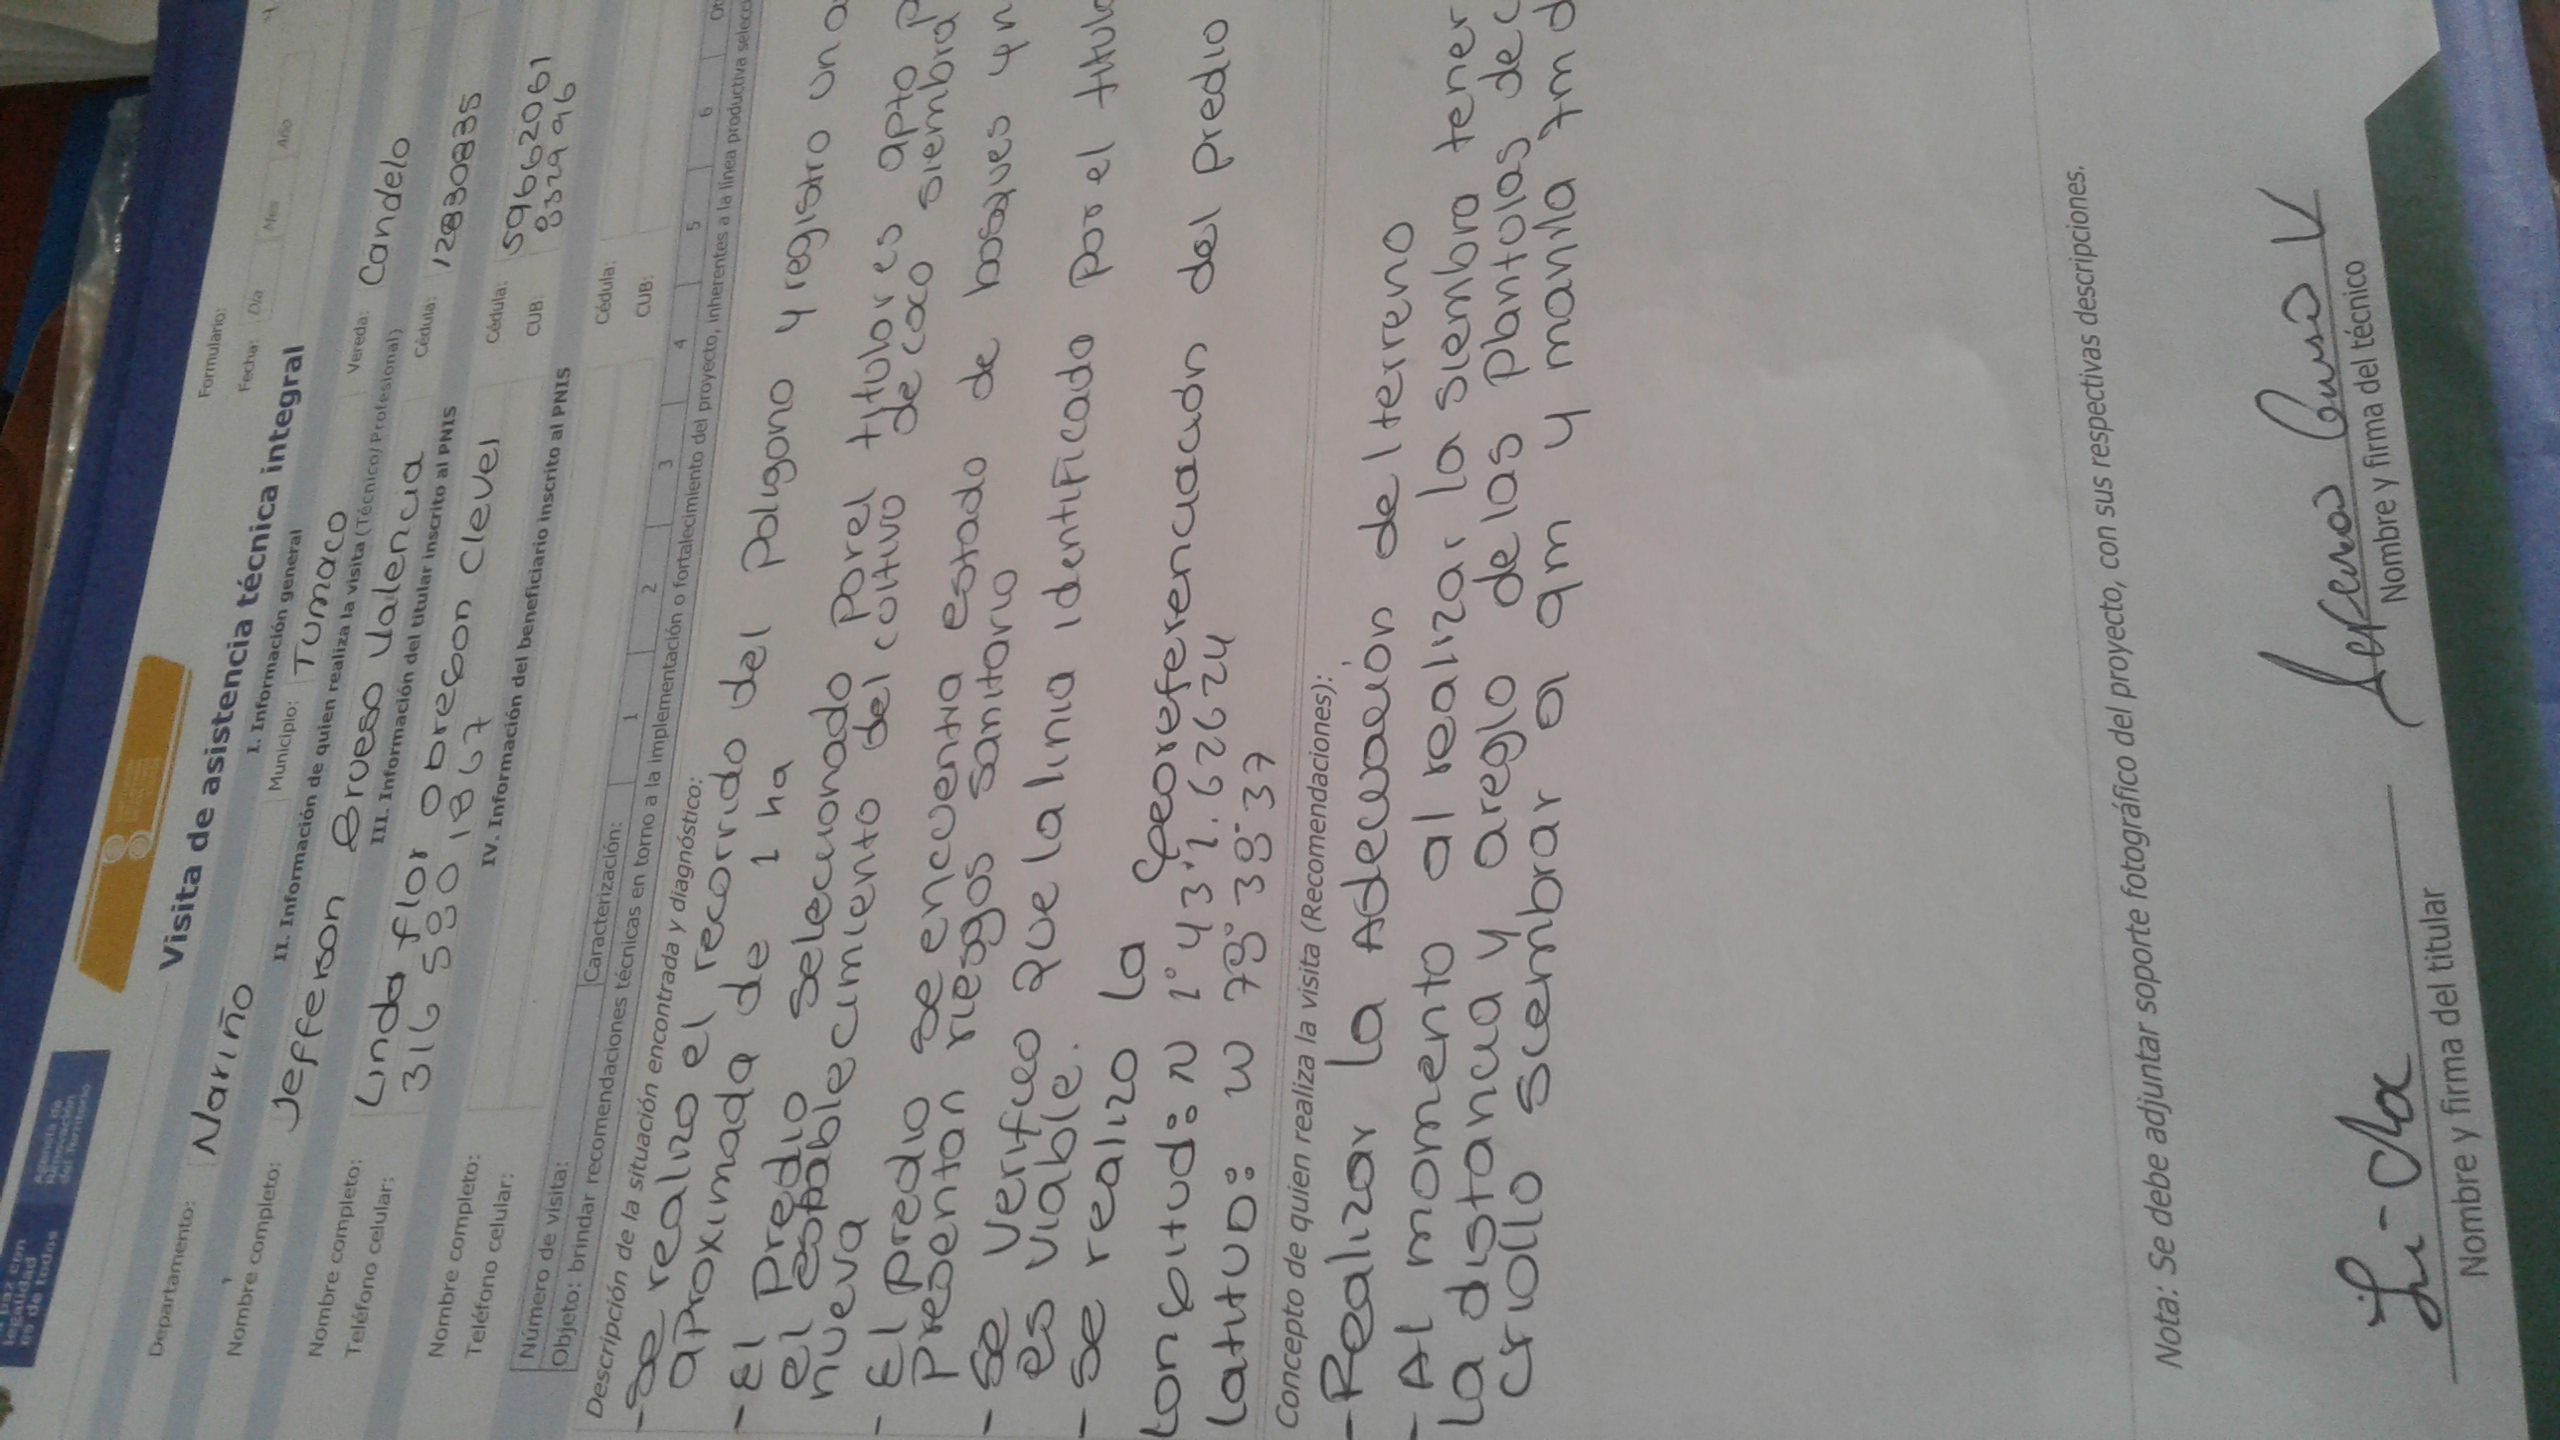 Agencia de
Renovación
del Territorio
Formulario:
Visita de asistencia técnica integral
Fecha: Día Mes Año
I. Información general
Departamento: Nariño Municipio: Tumaco Vereda: Candelo
II. Información de quien realiza la visita (Técnico/Profesional)
Nombre completo: Jefferson Brueso Valencia Cédula: 12830835
III. Información del titular inscrito al PNIS
Nombre completo: Linda flor Obregon Clevel Cédula: 59662061
Teléfono celular: 316 580 1867 CUB: 0329996
IV. Información del beneficiario inscrito al PNIS
Nombre completo: Cédula:
Teléfono celular: CUB:
Número de visita: Caracterización: 1 2 3 4 5 6
Objeto: brindar recomendaciones técnicas en torno a la implementación o fortalecimiento del proyecto, inherentes a la línea productiva
Descripción de la situación encontrada y diagnóstico:
- Se realizo el recorrido del Poligono y registro un
aproximada de 1 ha
- El Predio seleccionado Por el titular es apto
el establecimiento del cultivo de coco siembra
nueva
- El Predio se encuentra estado de bosques y
Presentan riesgos sanitario
- Se Verifico que la linia identificado por el
es viable.
- Se realizo la Georeferenciación del predio
Longitud: N 1° 43' 1. 62624
Latitud: W 78° 38' 37
Concepto de quien realiza la visita (Recomendaciones):
- Realizar la Adecuación del terreno
- Al momento al realizar la siembra tener
la distancia y areglo de las plantulas de
criollo sembrar a 9m y manila 7m
Nota: Se debe adjuntar soporte fotográfico del proyecto, con sus respectivas descripciones.
Nombre y firma del titular
Nombre y firma del técnico